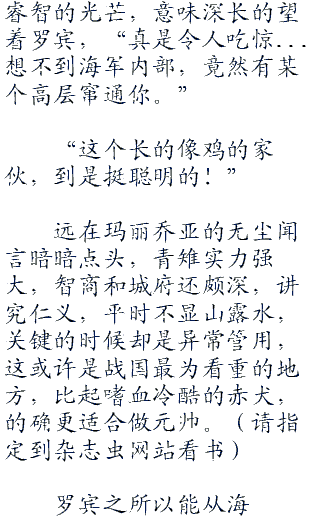 睿智的光芒，意味深长的望
着罗宾，“真是令人吃惊...
想不到海军内部，竟然有某
个高层窜通你。”
“这个长的像鸡的家
伙，到是挺聪明的！”
远在玛丽乔亚的无尘闻
言暗暗点头，青雉实力强
大，智商和城府还颇深，讲
究仁义，平时不显山露水，
关键的时候却是异常管用，
这或许是战国最为看重的地
方，比起嗜血冷酷的赤犬，
的确更适合做元帅。（请指
定到杂志虫网站看书）
罗宾之所以能从海